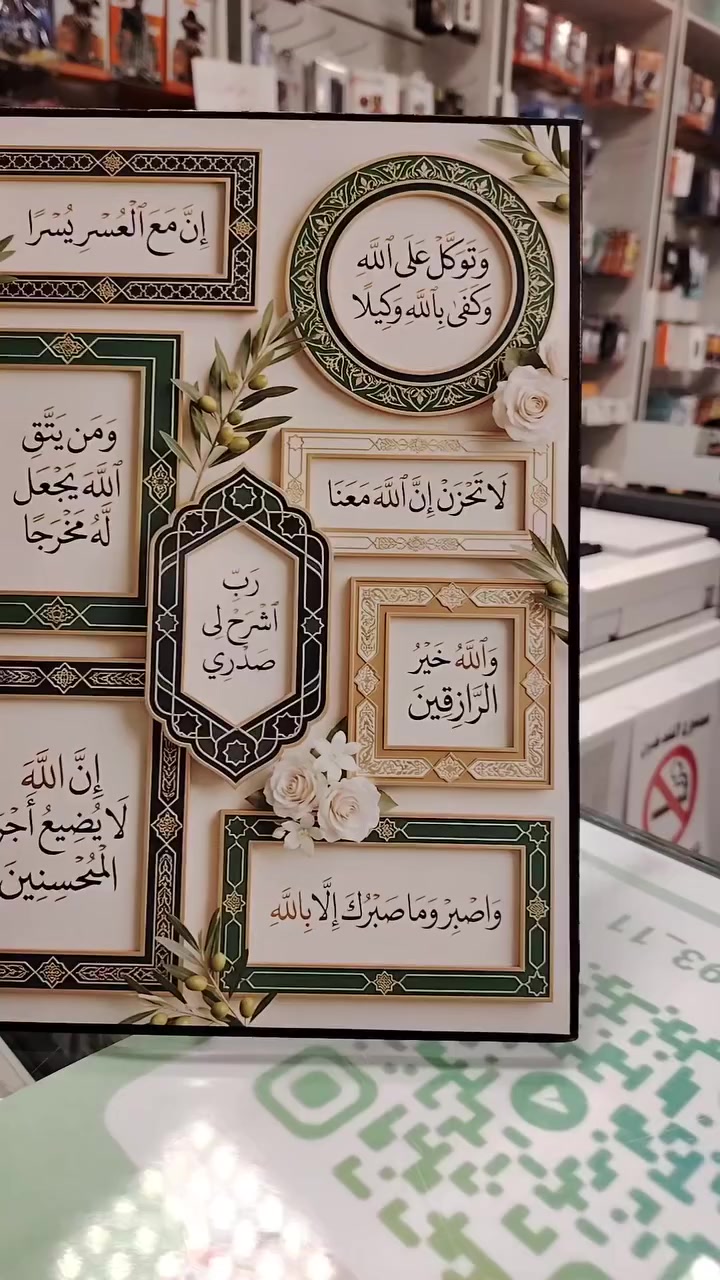 إِنَّ مَعَ ٱلْعُسْرِ يُسْرًا
وَتَوَكَّلْ عَلَى ٱللَّهِ
وَكَفَىٰ بِٱللَّهِ وَكِيلًا
وَمَن يَتَّقِ
ٱللَّهَ يَجْعَل
لَّهُ مَخْرَجًا
لَا تَحْزَنْ إِنَّ ٱللَّهَ مَعَنَا
رَبِّ
ٱشْرَحْ لِى
صَدْرِي
وَٱللَّهُ خَيْرُ
الرَّازِقِينَ
إِنَّ اللَّهَ
لَا يُضِيعُ أَجْرَ
الْمُحْسِنِينَ
وَاصْبِرْ وَمَا صَبْرُكَ إِلَّا بِاللَّهِ
93_11